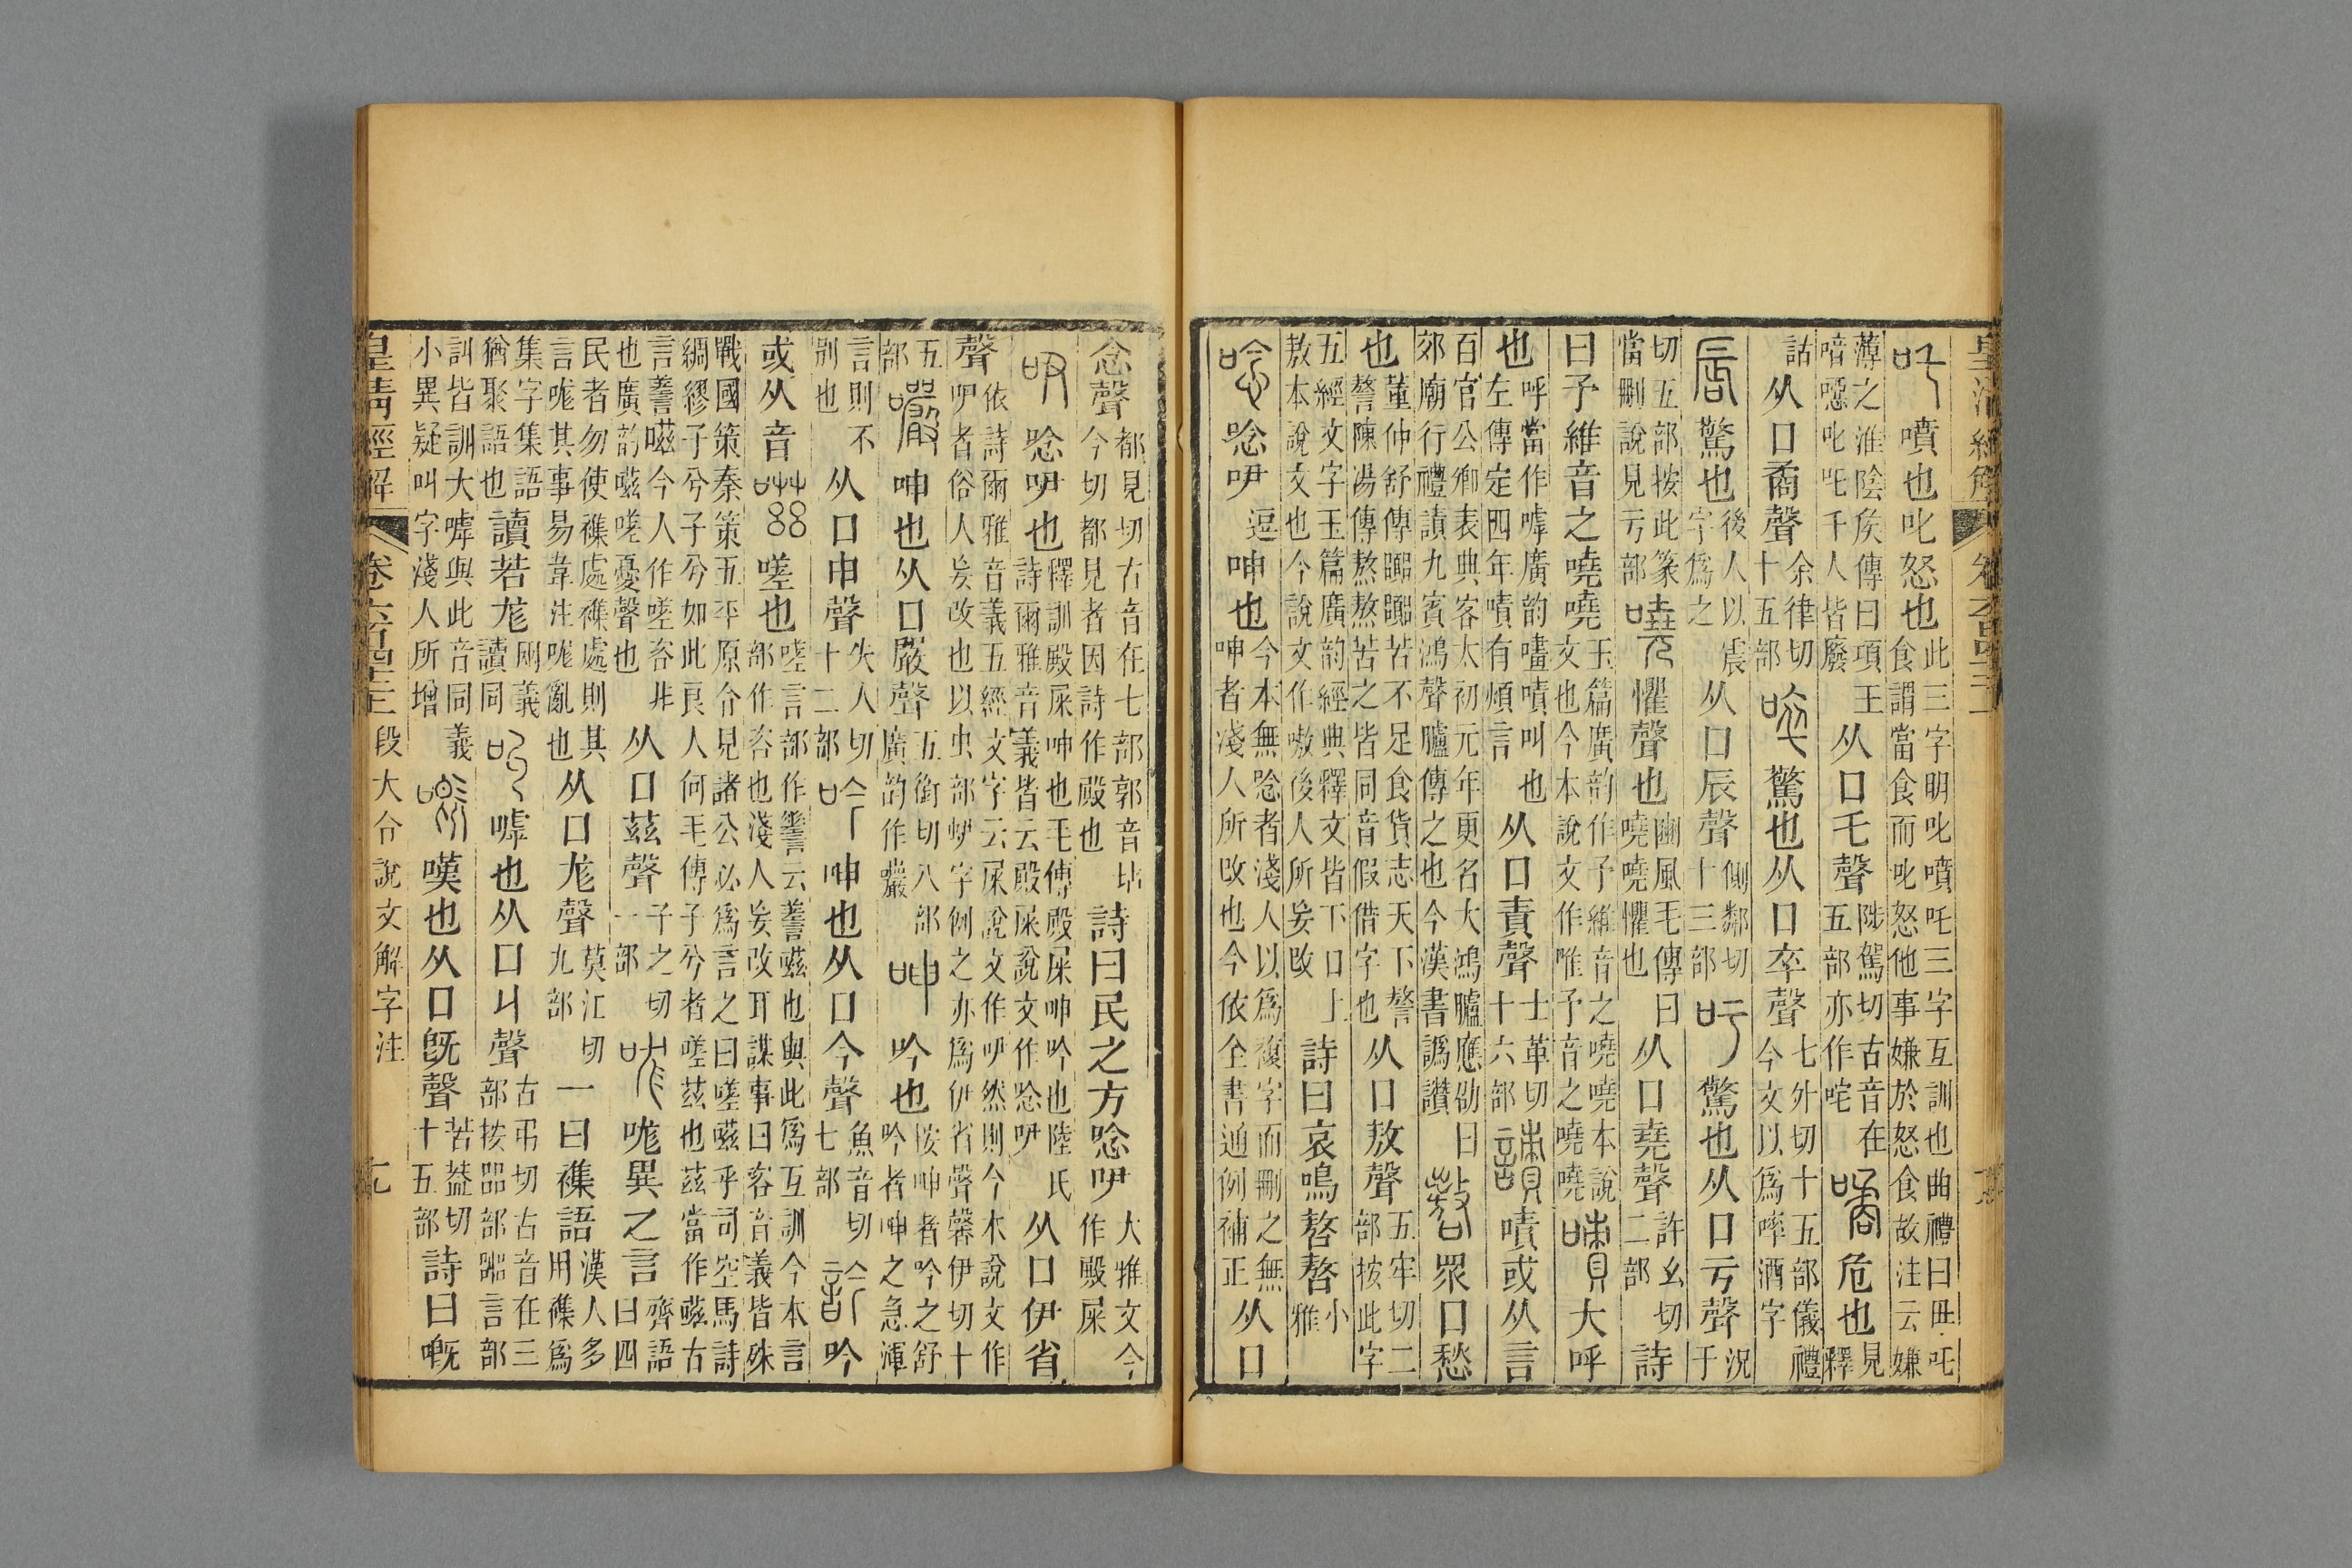 皇清經解 卷六百四十二
吒噴也叱怒也此三字明叱噴吒三字互訓也曲禮曰毋吒食謂當食而叱怒他事嫌於怒食故注云嫌
薄之淮陰矦傳曰項王喑噁叱吒千人皆廢从口乇聲陟駕切古音在五部亦作咤噊危也見釋
詁从口矞聲余律切十五部啐驚也从口卒聲七外切十五部儀禮今文以爲啐酒字
脣驚也後人以震字爲之从口辰聲側鄰切十三部吁驚也从口亏聲況于
切五部按此篆當刪說見亏部嘵懼聲也豳風毛傳曰嘵嘵懼也从口堯聲許幺切二部詩
曰予維音之嘵嘵玉篇廣韵作予維音之嘵嘵本說文也今本說文作唯予音之嘵嘵嘖大呼
也呼當作嘑廣韵嘖叫也左傳定四年嘖有煩言从口責聲士革切十六部讀嘖或从言
百官公卿表典客太初元年更名大鴻臚應劭曰郊廟行禮讀九賓鴻聲臚傳之也今漢書譌讚嗸眾口愁
也董仲舒傳嚻嚻苦不足食貨志天下謷謷陳湯傳熬熬苦之皆同音假借字也从口敖聲五牢切二部按此字
五經文字玉篇廣韵經典釋文皆下口上敖本說文也今說文作嗷後人所妄改詩曰哀鳴嗸嗸小雅
唸唸㕧逗呻也今本無唸者淺人以爲複字而刪之無呻者淺人所改也今依全書通例補正从口
念聲都見切古音在七部郭音坫今切都見者因詩作殿也詩曰民之方唸㕧大雅文今作殿屎
㕧唸㕧也釋訓殿屎呻也毛傳殿屎呻吟也陸氏詩爾雅音義皆云殿屎說文作唸㕧从口伊省
聲依詩爾雅音義五經文字云屎說文作㕧然則今本說文作㕧者俗人妄改也以虫部蛜字例之亦爲伊省聲馨伊切十
五部嚴呻也从口嚴聲五銜切八部廣韵作巖呻吟也按呻者吟之舒吟者呻之急渾
言則不別也从口申聲失人切十二部吟呻也从口今聲魚音切七部訡吟
或从音嗞嗟也嗟言部作𧪘云𧪘嗞也與此爲互訓今本言部作咨也淺人妄改耳謀事曰咨音義皆殊
戰國策秦策五平原令見諸公必爲言之曰嗟嗞乎司空馬詩綢繆子兮子兮如此良人何毛傳子兮者嗟茲也茲當作嗞古
言𧪘嗞今人作嗟咨非也廣韵嗞嗟憂聲也从口茲聲子之切一部哤哤異之言齊語曰四
民者勿使襍處襍處則其言哤其事易韋注哤亂也从口尨聲莫江切九部一曰襍語漢人多用襍爲
集字集語猶聚語也讀若尨刪義讀同叫嘑也从口丩聲古弔切古音在三部按㗊部嘂言部
訆皆訓大嘑與此音同義小異疑叫字淺人所增嘅嘆也从口旣聲苦蓋切十五部詩曰嘅
皇清經解 卷六百四十二 段大令說文解字注 九